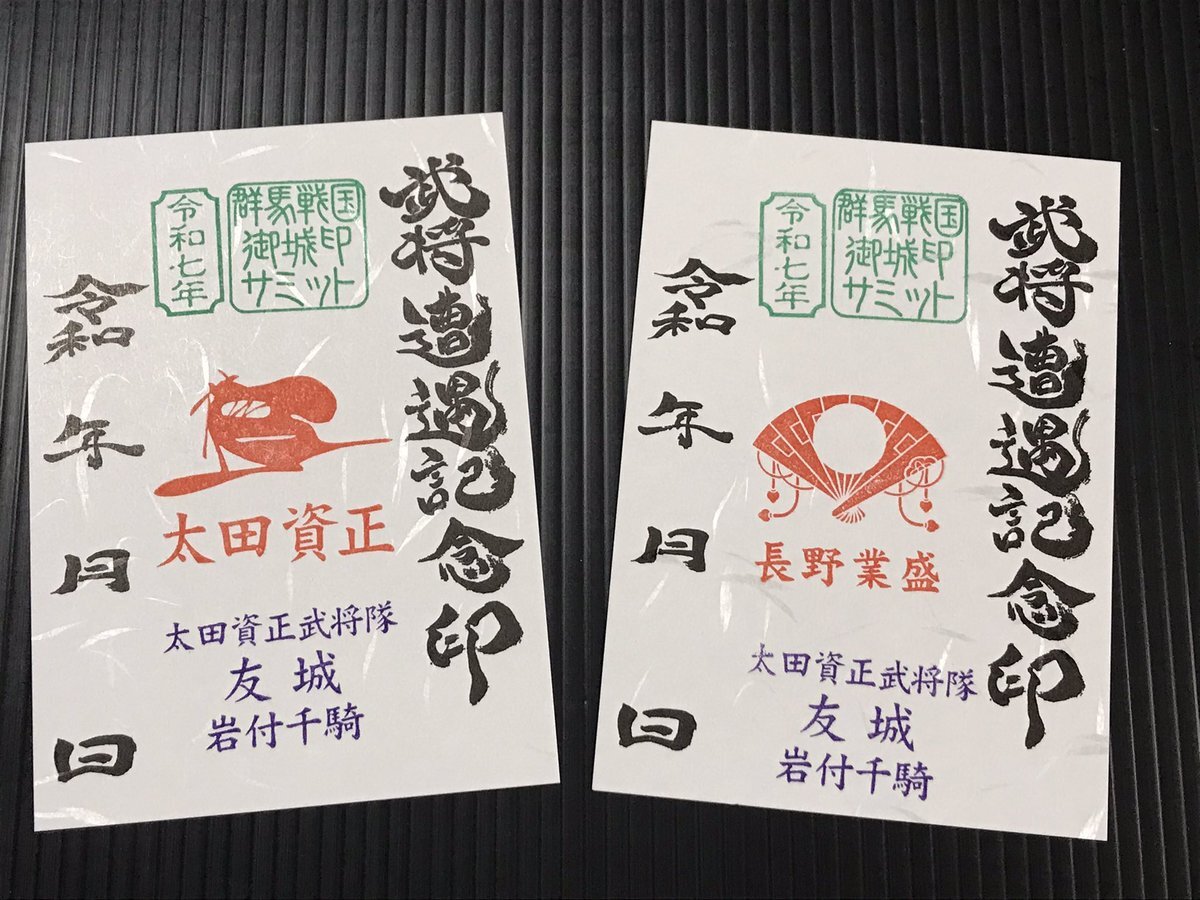 武将遭遇記念印
令和七年
群馬戦国
御城印
サミット
令和 年 月 日
太田資正
太田資正武将隊
友城
岩付千騎
武将遭遇記念印
令和七年
群馬戦国
御城印
サミット
令和 年 月 日
長野業盛
太田資正武将隊
友城
岩付千騎